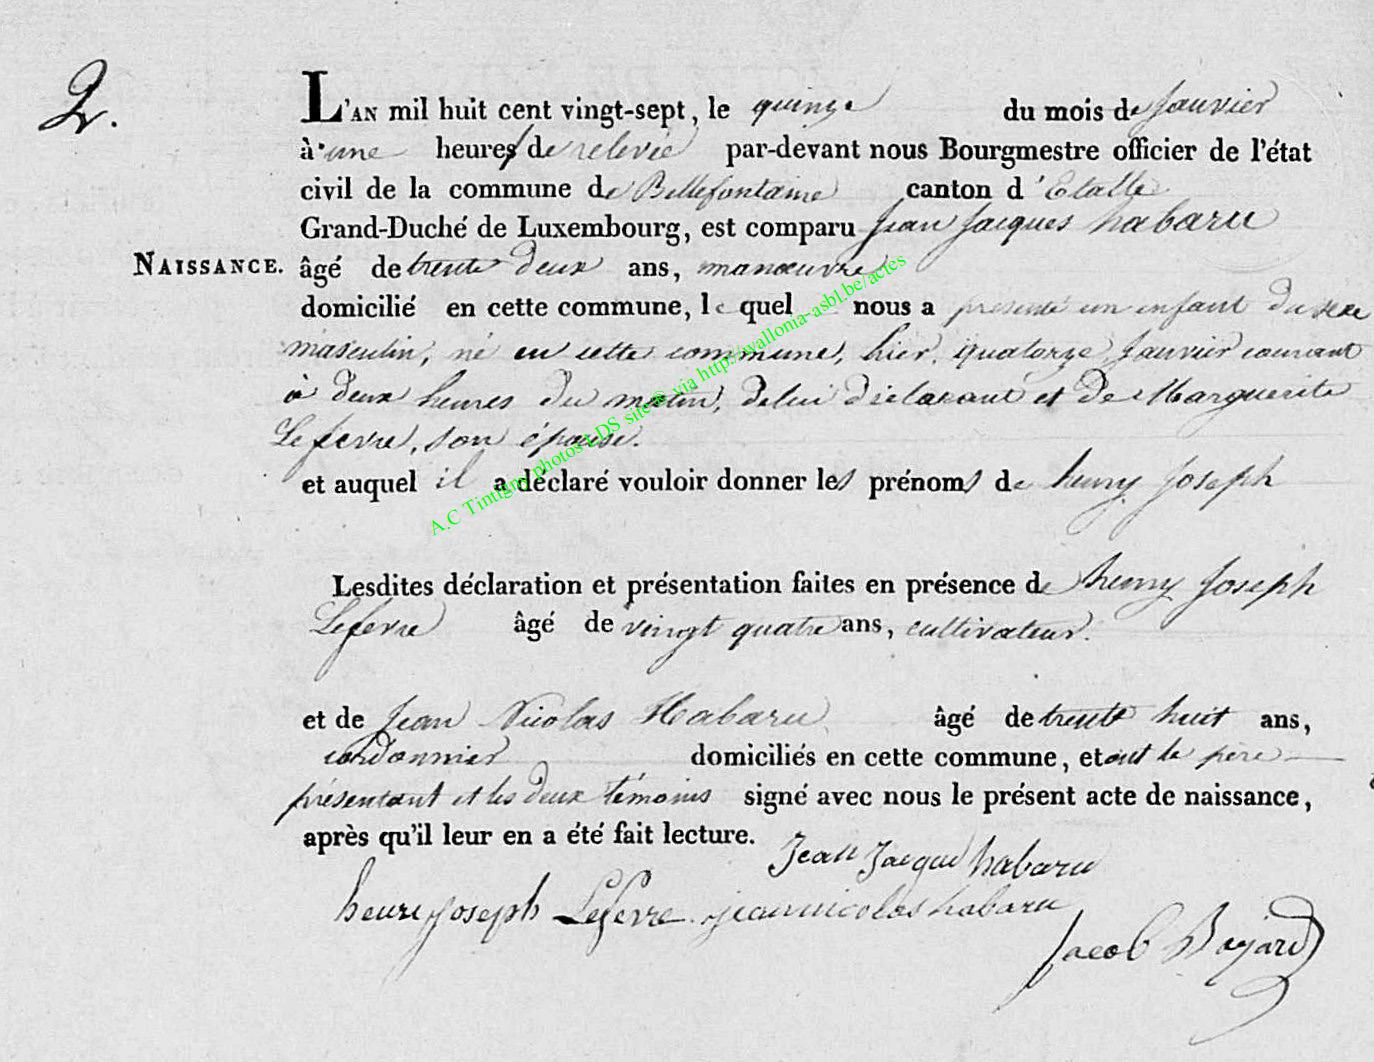 2.
L'AN mil huit cent vingt-sept, le quinze du mois de Janvier
à une heures de relevée par-devant nous Bourgmestre officier de l'état
civil de la commune de Bellefontaine canton d'Etalle
Grand-Duché de Luxembourg, est comparu Jean Jacques habaru
NAISSANCE. âgé de trente deux ans, manœuvre
domicilié en cette commune, le quel nous a présenté un enfant du sexe
masculin, né en cette commune, hier, quatorze Janvier courant
à deux heures du matin, de lui déclarant et de Marguerite
Lefevre, son épouse.
et auquel il a déclaré vouloir donner les prénoms de henry Joseph
Lesdites déclaration et présentation faites en présence de henry Joseph
Lefevre âgé de vingt quatre ans, cultivateur.
et de Jean Nicolas Habaru âgé de trente huit ans,
cordonnier domiciliés en cette commune, et ont le père
présentant et les deux témoins signé avec nous le présent acte de naissance,
après qu'il leur en a été fait lecture.
Jean Jacque habaru
henri joseph Lefevre jean nicolas habaru
Jacob Bayard
A.C Tintigny photos LDS site via http://wallonia-asbl.be/actes